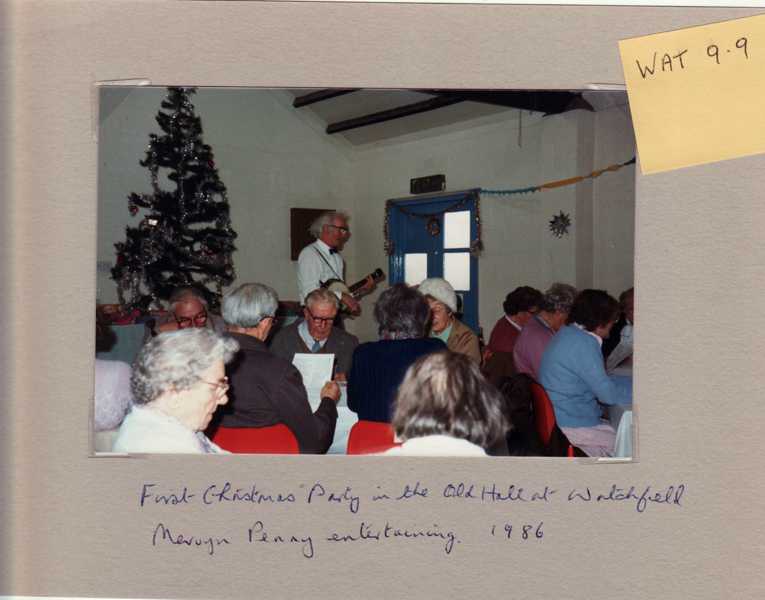 WAT 9.9
First Christmas Party in the Old Hall at Watchfield
Mervyn Penny entertaining. 1986